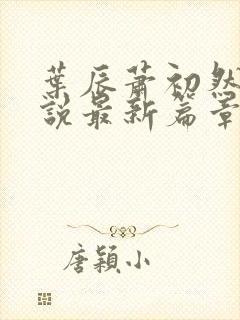 葉辰蕭初然
說最新篇章
唐穎小